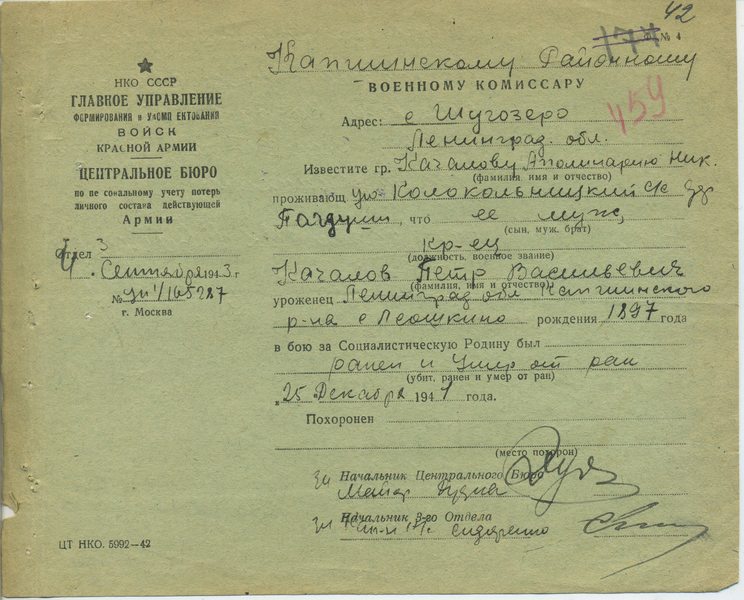 42
174 № 4
НКО СССР
ГЛАВНОЕ УПРАВЛЕНИЕ
ФОРМИРОВАНИЯ И УКОМПЛЕКТОВАНИЯ
ВОЙСК
КРАСНОЙ АРМИИ
ЦЕНТРАЛЬНОЕ БЮРО
по персональному учету потерь
личного состава действующей
Армии
Отдел 3
4. Сентября 1943 г
№ 1/165287
г. Москва
Капшинскому Районному
ВОЕННОМУ КОМИССАРУ
459
Адрес: с Шугозеро
Ленинград. обл.
Известите гр. Качалову Аполинарию Ник.
(фамилия, имя и отчество)
проживающ. Колокольницкий с/с дер
что ее муж,
(сын, муж, брат)
кр-ец
(должность, военное звание)
Качалов Петр Васильевич
(фамилия, имя и отчество)
уроженец Ленинград обл Капшинского
р-на с Леошкино рождения 1897 года
в бою за Социалистическую Родину был
ранен и умер от ран
(убит, ранен и умер от ран)
"25 Декабря 1941 года.
Похоронен
(место похорон)
за Начальник Центрального Бюро
Майор
за Начальник 3-го Отдела
Сидоренко
ЦТ НКО. 5992—42